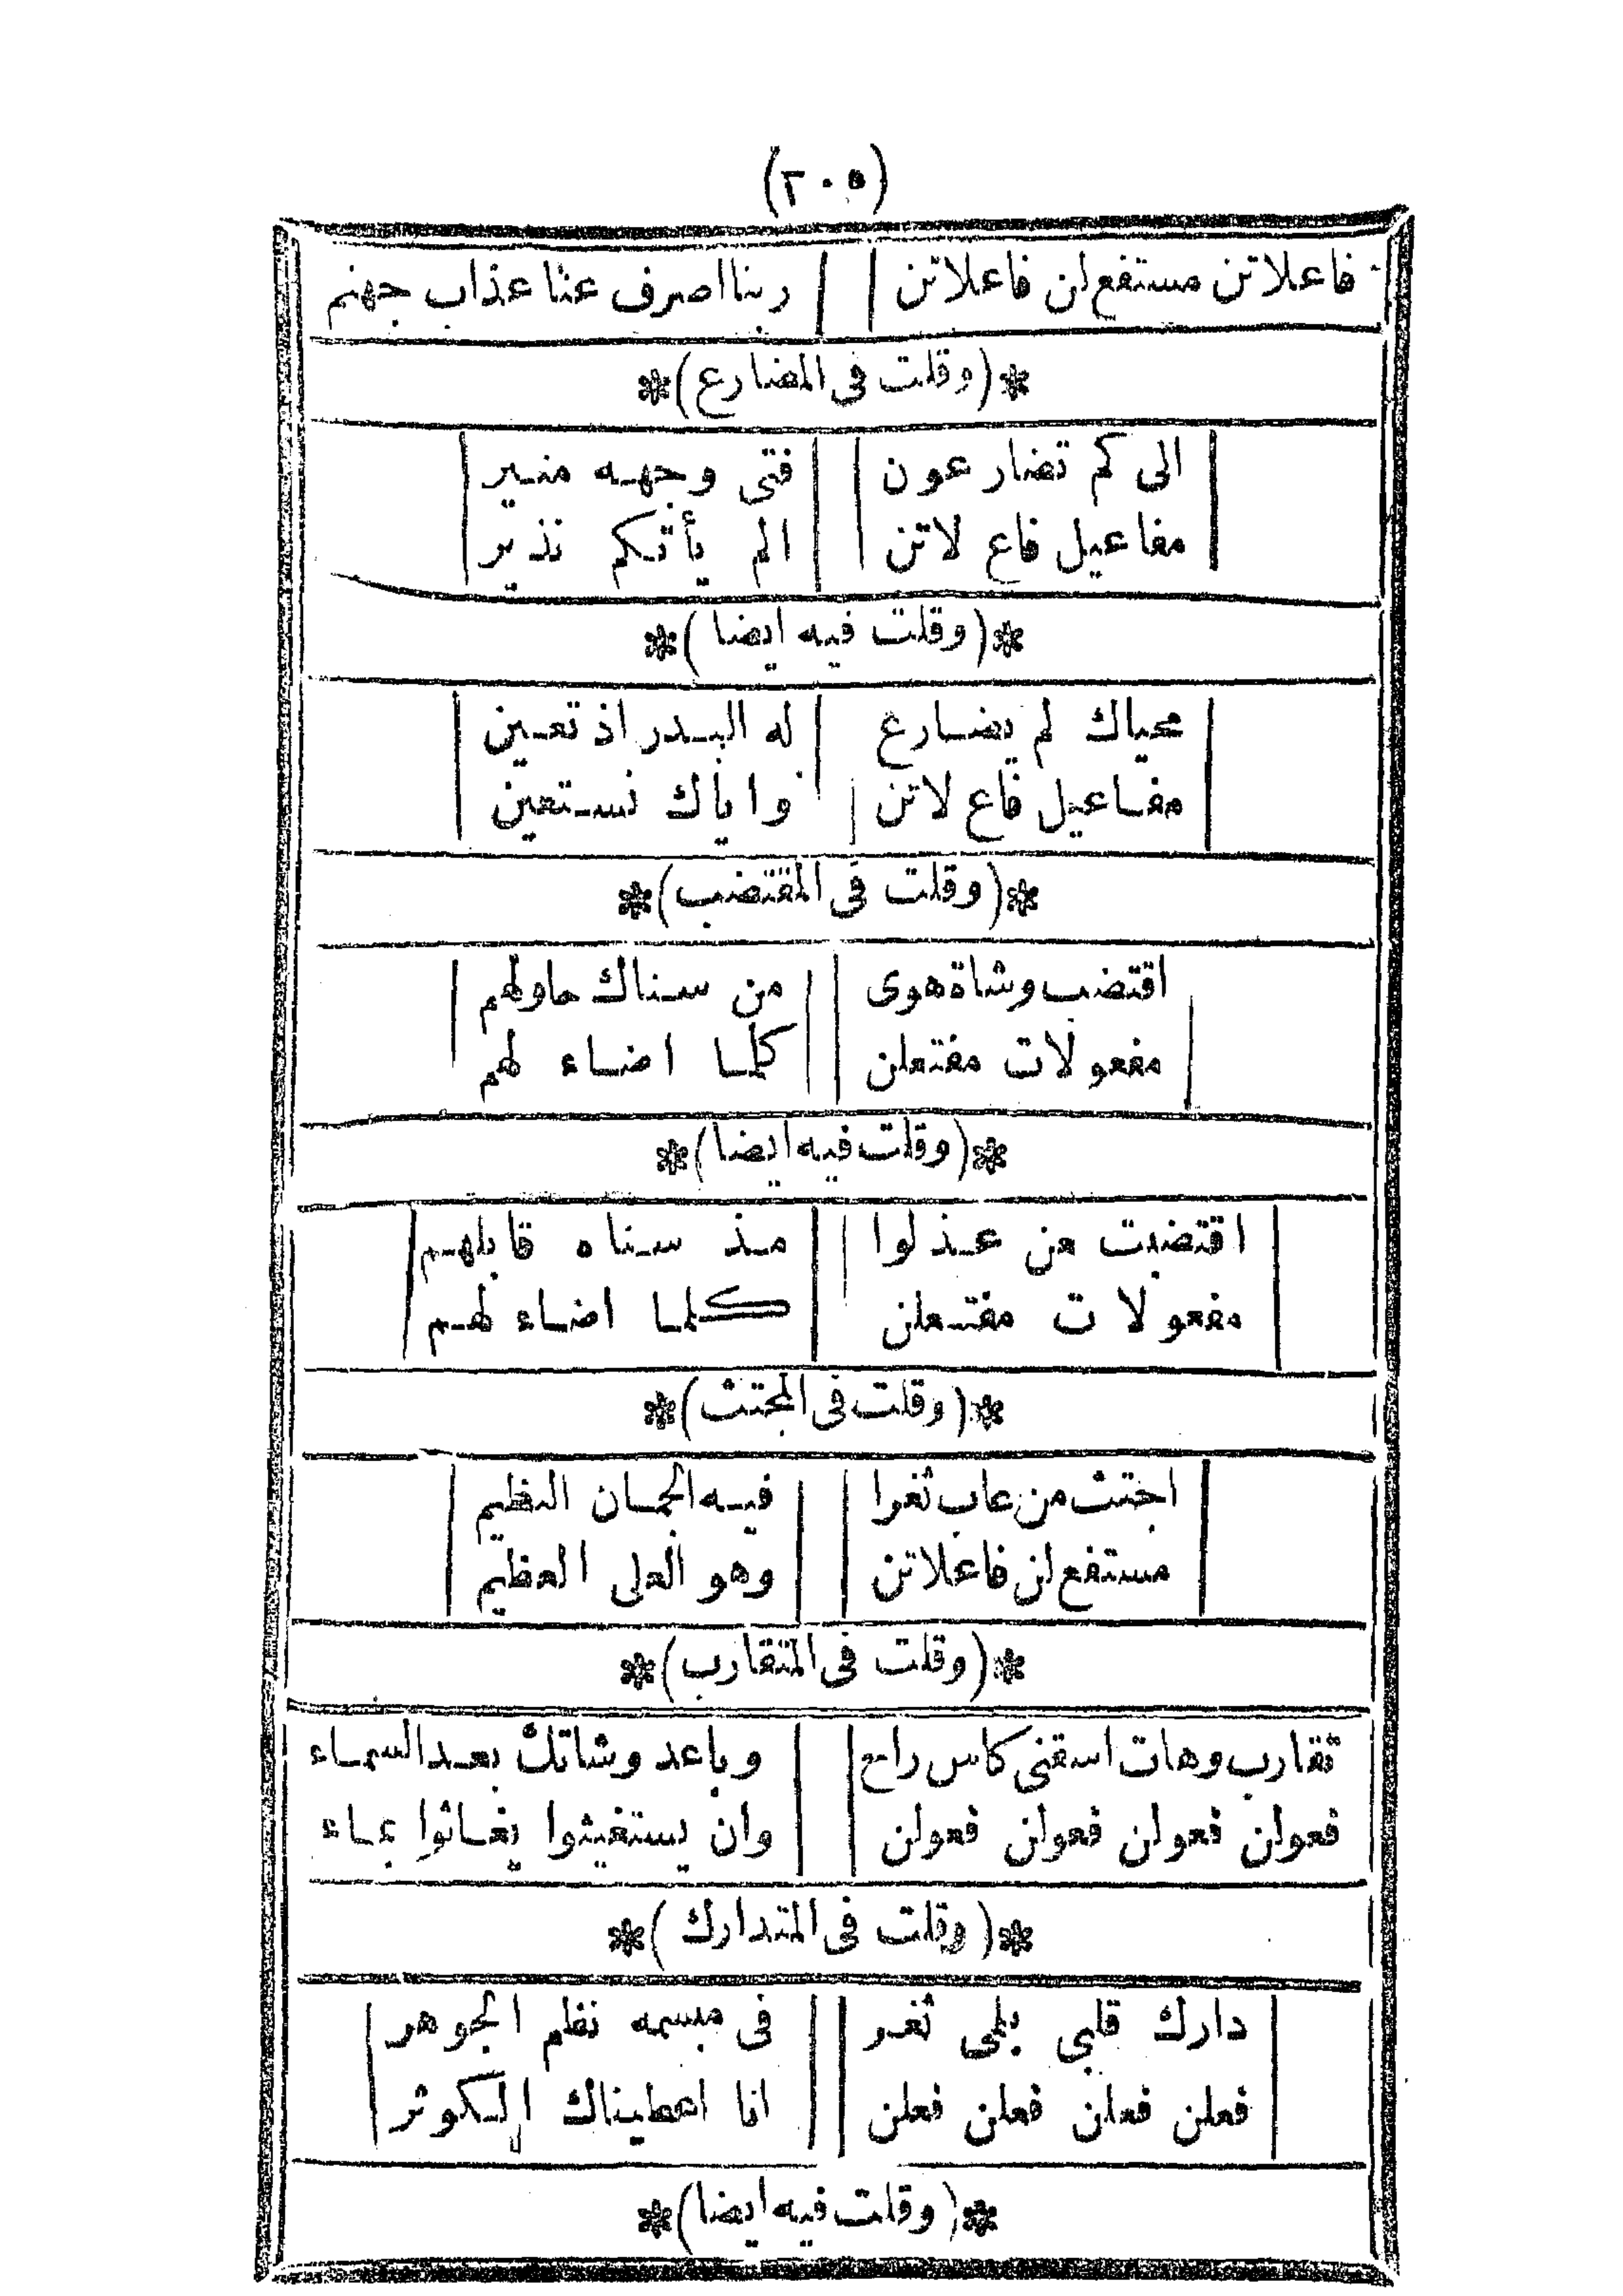 (٢٠٥)
فاعلاتن مستفع لن فاعلاتن ربنا اصرف عنا عذاب جهنم
*(وقلت فى المضارع)*
الى كم تضارعون فتى وجهه منير
مفاعيل فاع لاتن الم يأتكم نذير
*(وقلت فيه ايضا)*
محياك لم يضارع له البدر اذ تعين
مفاعيل فاع لاتن واياك نستعين
*(وقلت فى المقتضب)*
اقتضب وشاة هوى من سناك حاولهم
مفعولات مفتعلن كلما اضاء لهم
*(وقلت فيه ايضا)*
اقتضبت من عذلوا مذ سناه قابلهم
مفعولات مفتعلن كلما اضاء لهم
*(وقلت فى المجتث)*
اجتث من عاب ثغرا فيه الجمان النظيم
مستفع لن فاعلاتن وهو العلى العظيم
*(وقلت فى المتقارب)*
تقارب وهات اسقنى كاس راح وباعد وشاتك بعد السماء
فعولن فعولن فعولن فعولن وان يستغيثوا يغاثوا بماء
*(وقلت فى المتدارك)*
دارك قلبى بلمى ثغر فى مبسمه نظم الجوهر
فعلن فعلن فعلن فعلن انا اعطيناك الكوثر
*(وقلت فيه ايضا)*